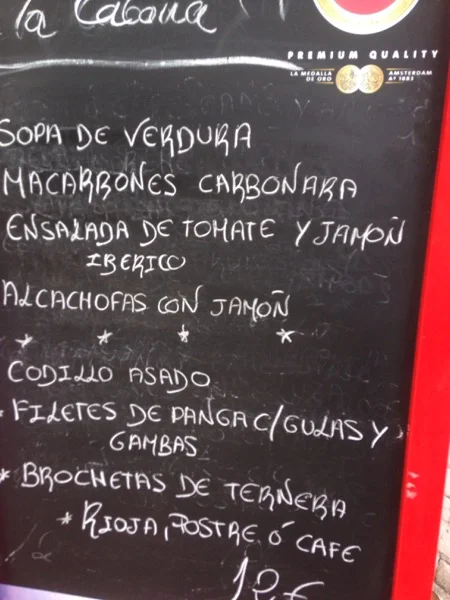 la Cabaña
PREMIUM QUALITY
LA MEDALLA DE ORO
AMSTERDAM Aº 1883
SOPA DE VERDURA
MACARRONES CARBONARA
ENSALADA DE TOMATE Y JAMOÑ
IBERICO
ALCACHOFAS CON JAMOÑ
* * * *
CODILLO ASADO
* FILETES DE PANGA C/GULAS Y
GAMBAS
* BROCHETAS DE TERNERA
* RIOJA, POSTRE Ó CAFE
12€